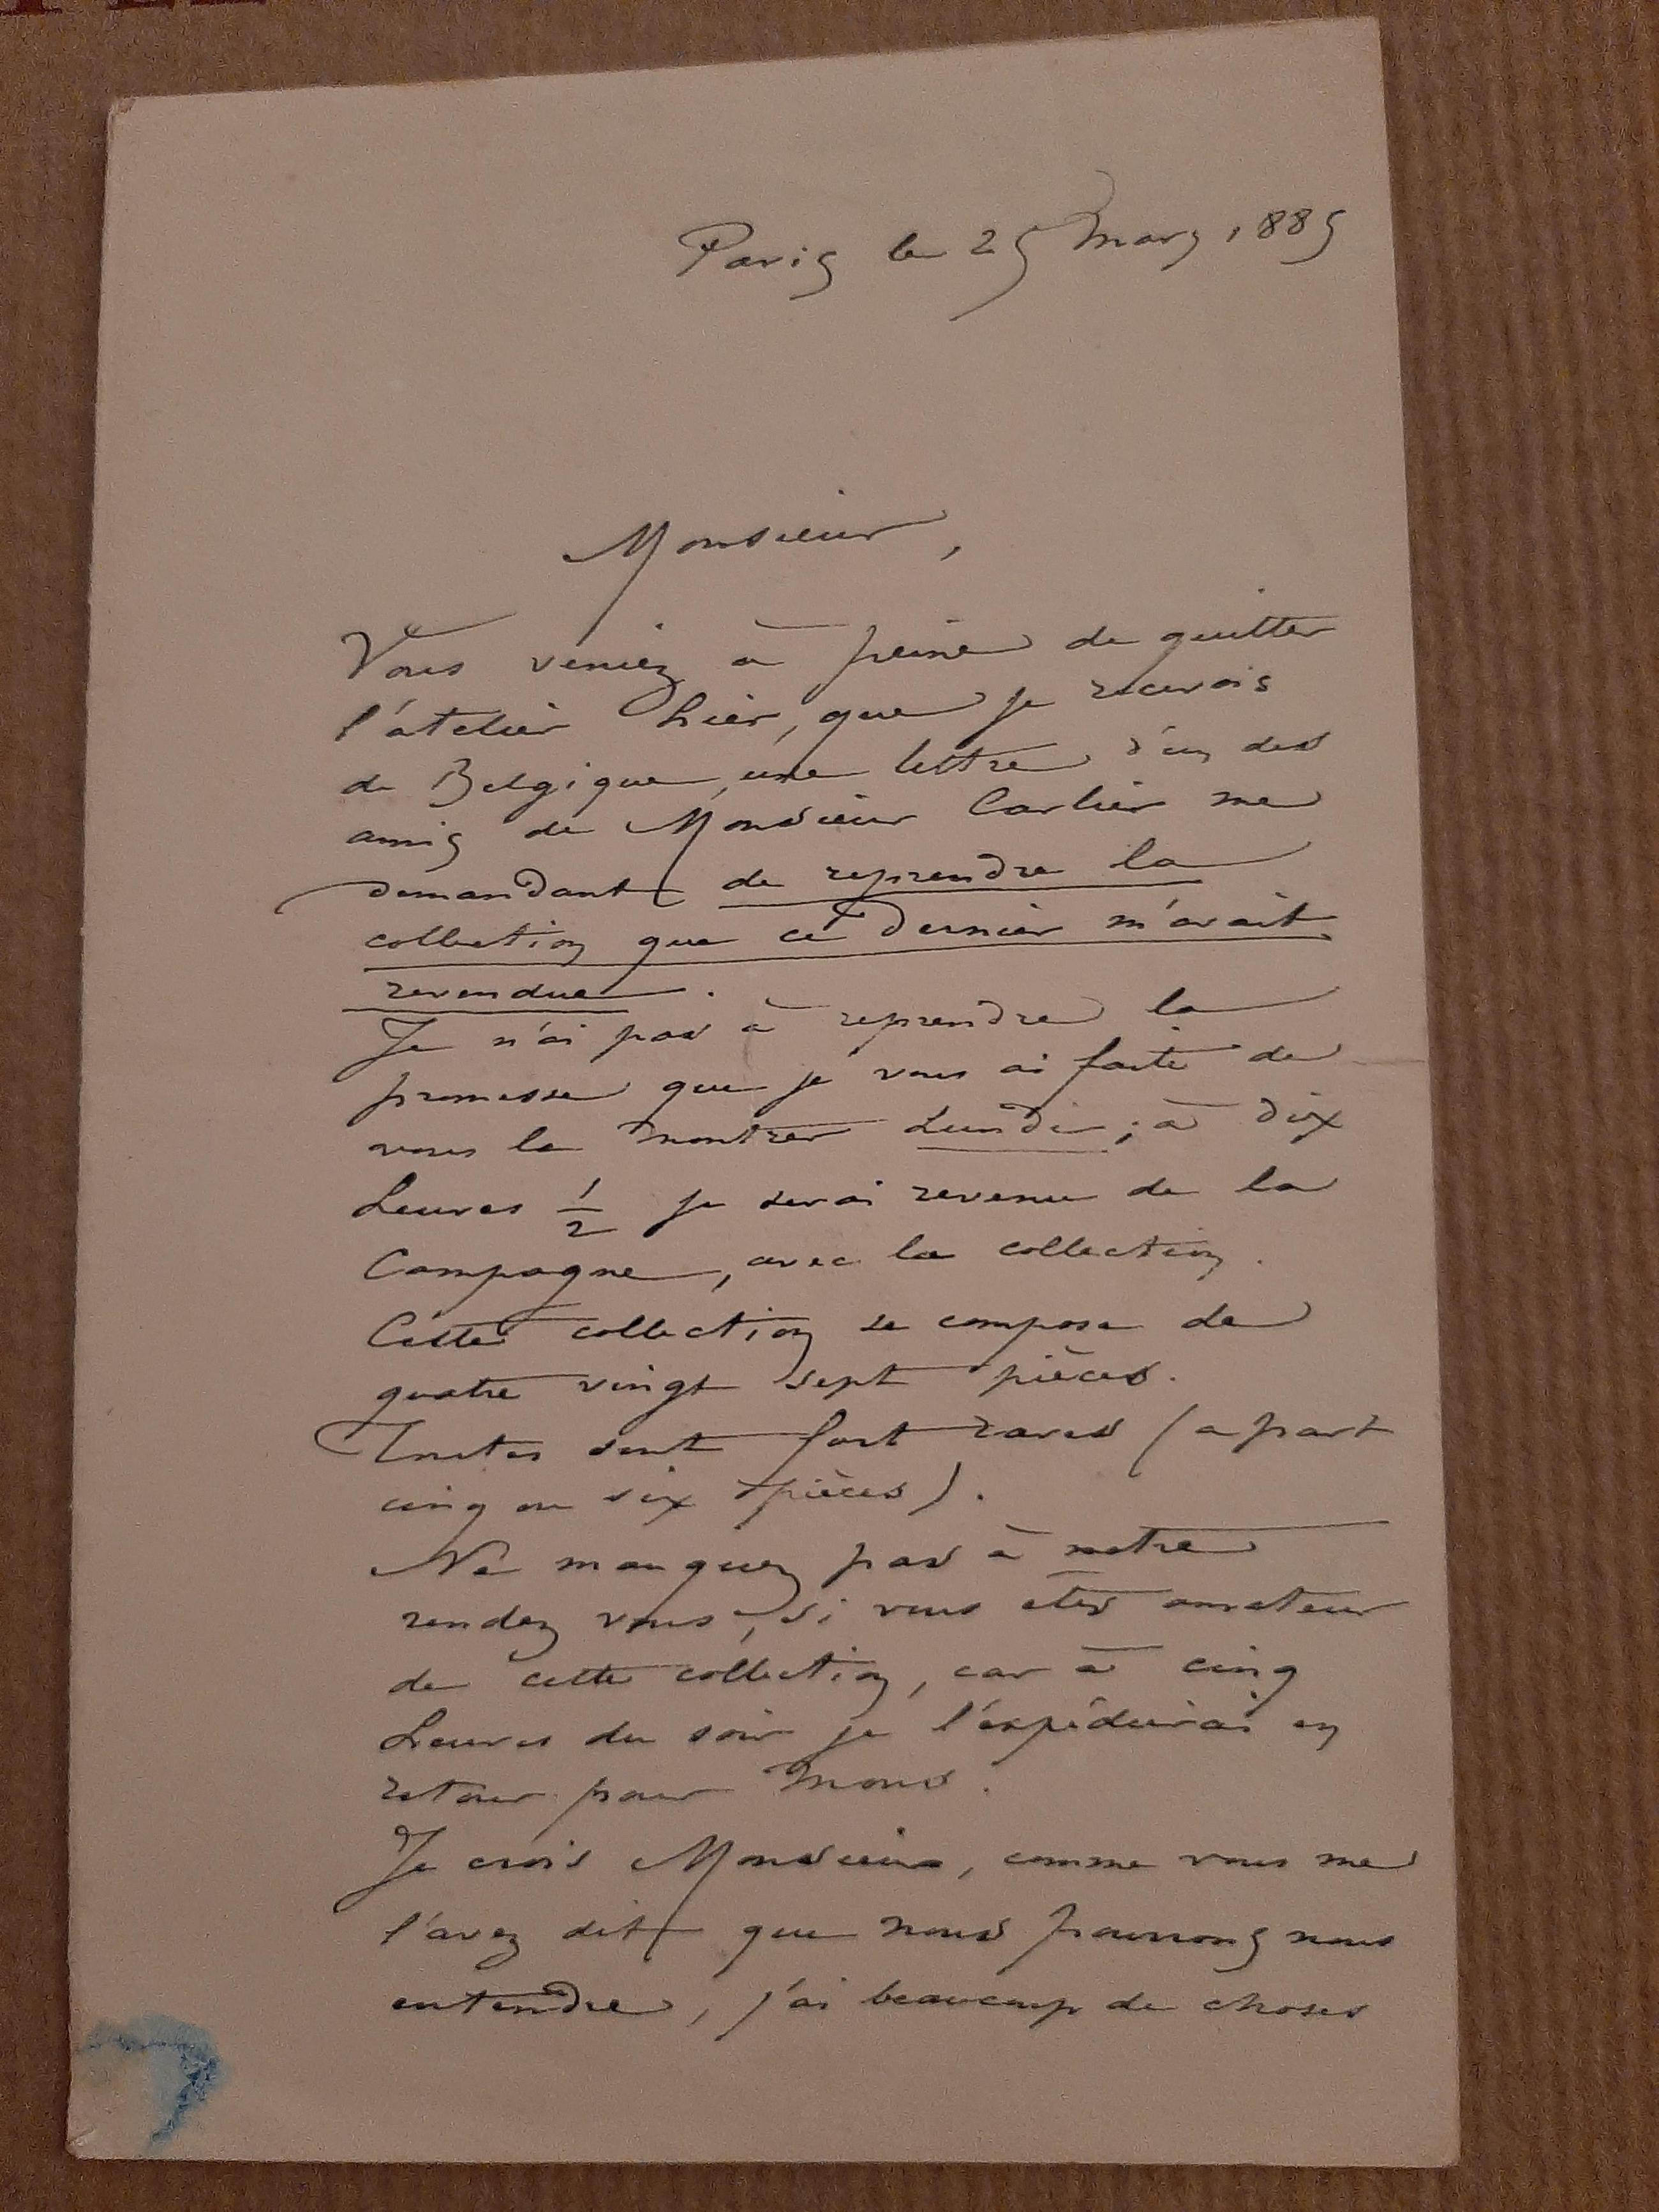 Paris le 25 Mars 1885
Monsieur,
Vous veniez à peine de quitter
l'atelier hier, que je recevois
de Belgique, une lettre d'un des
amis de Monsieur Carlier me
demandant de reprendre la
collection que ce dernier m'avait
revendue.
Je n'ai pas à reprendre la
promesse que je vous ai faite de
vous la montrer Lundi ; à dix
heures 1/2 je serai revenu de la
Campagne, avec la collection.
Cette collection se compose de
quatre vingt sept pièces.
Toutes sont fort rares (a part
cinq ou six pièces).
Ne manquez pas à notre
rendez vous, si vous êtes amateur
de cette collection, car à cinq
heures du soir je l'expédierai en
retour pour Mons.
Je crois Monsieur, comme vous me
l'avez dit que nous pourrons nous
entendre, j'ai beaucoup de choses